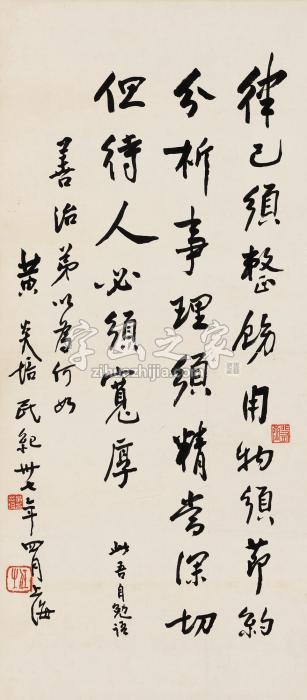 律己須整飭用物須節約
分析事理須精當深切
但待人必須寬厚
此吾自勉語
善治弟以為何如
黃炎培民紀卅七年四月上海
字画之家
zihuazhijia.com